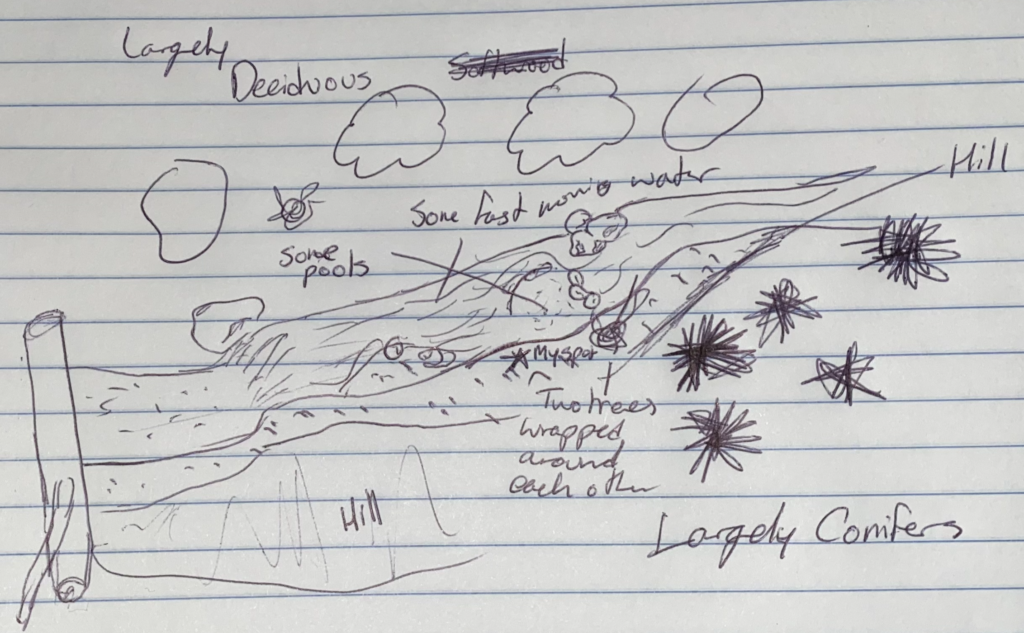 Largely
Deciduous
Softwood
Hill
Some fast moving water
Some
pools
My spot
Two trees
wrapped
around
each other
Hill
Largely Conifers